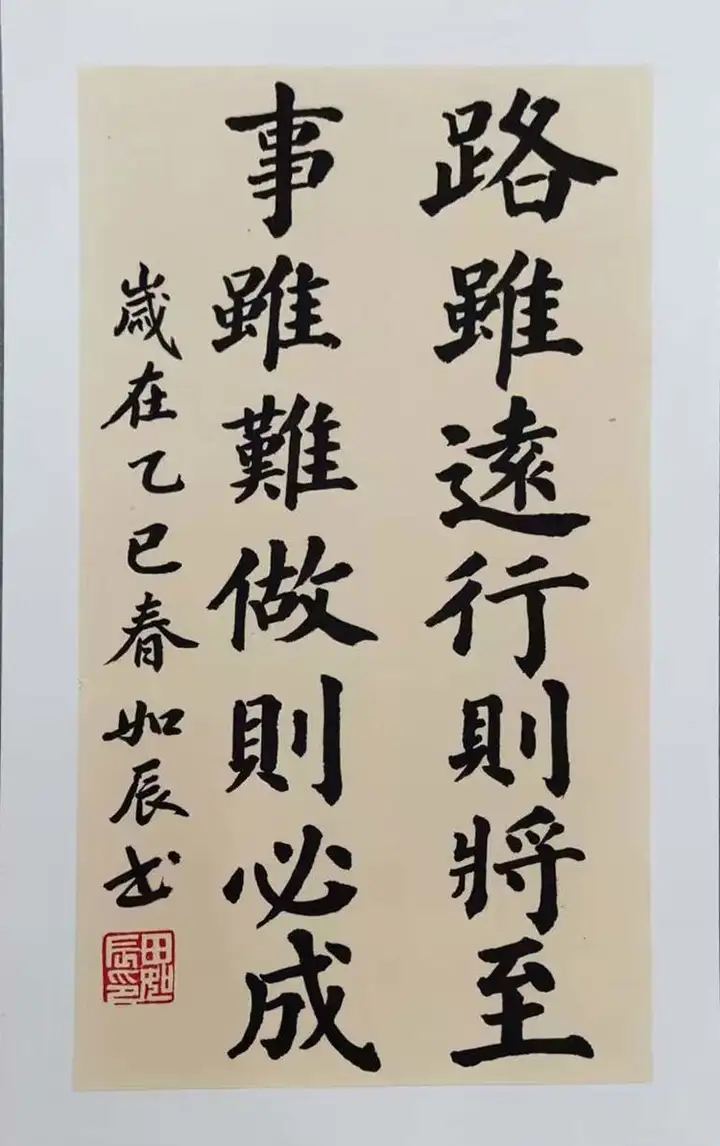 路雖遠行則將至
事雖難做則必成
歲在乙巳春如辰书
田如辰印